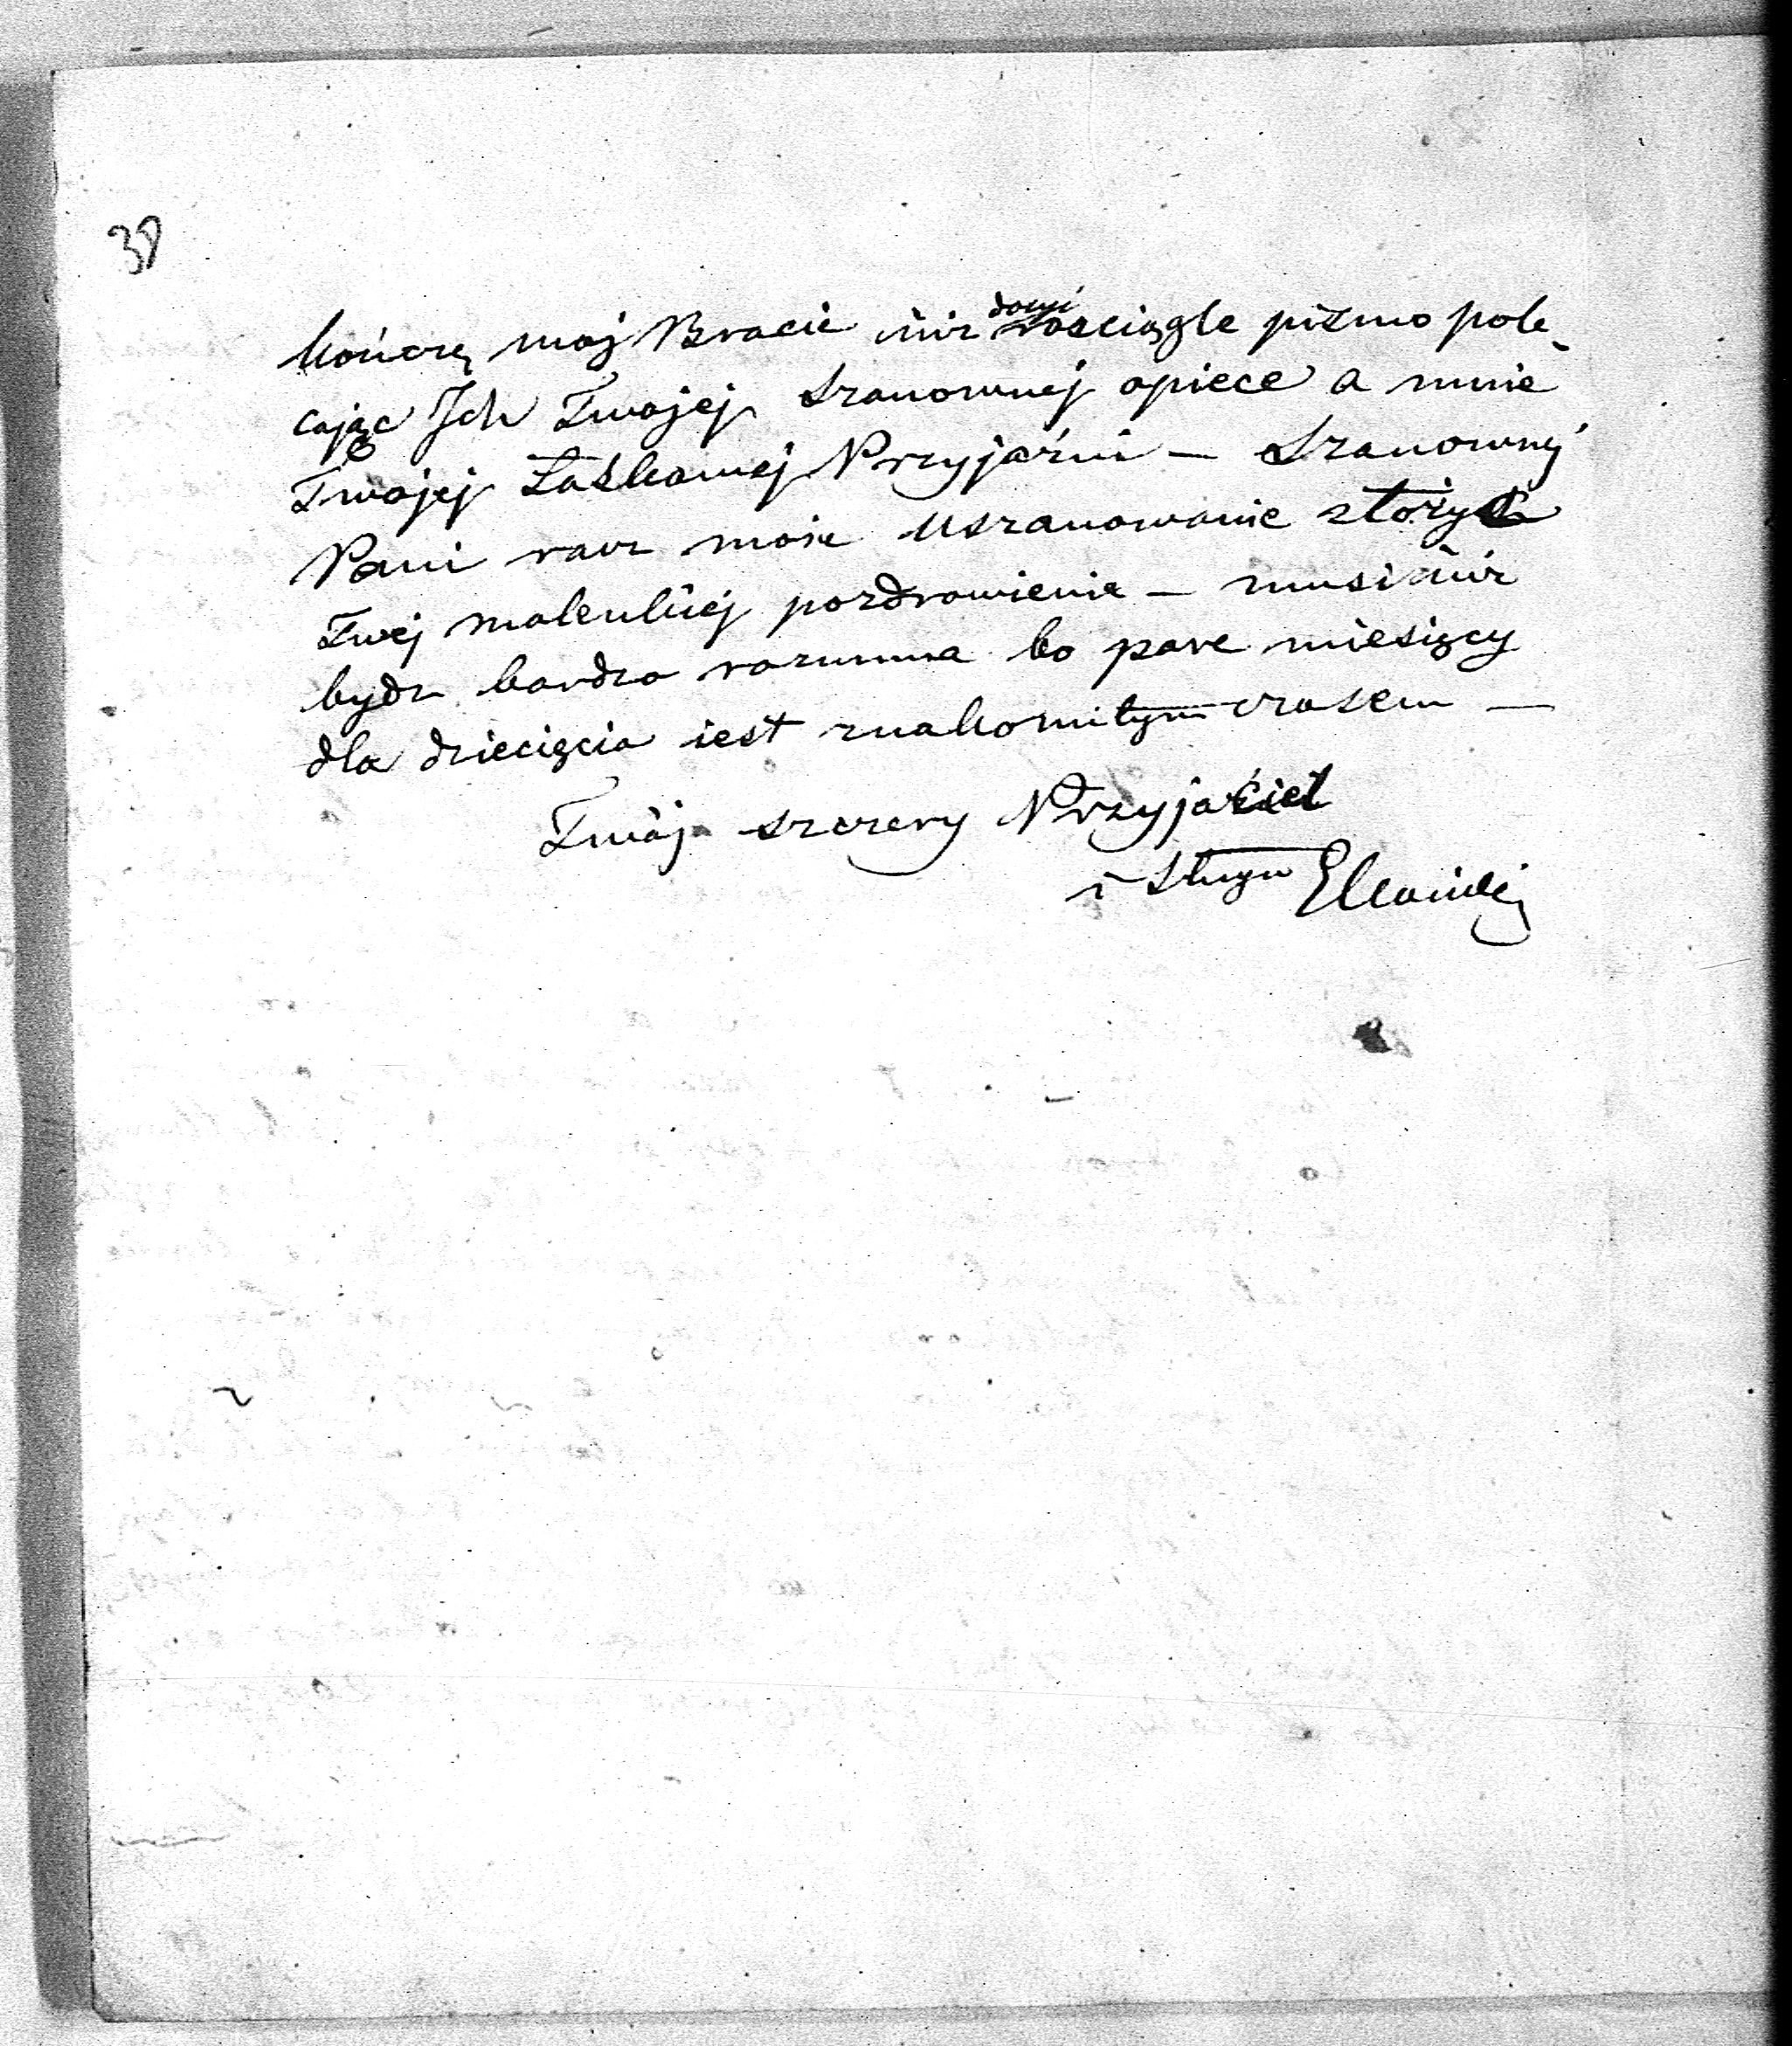 38
kończę moj Bracie iuz dosyć rosciągłe pismo pole-
cając Ich Twojej szanownej opiece a mnie
Twojej Łaskawej Przyjaźni – Szanownej
Pani racz moie uszanowanie złożyć
Twej maleńkiej pozdrowienie – musi iuz
bydz bardzo rozumna bo pare miesięcy
dla dziecięcia iest znakomitym czasem –
Twój szczery Przyjaciel
i sługa